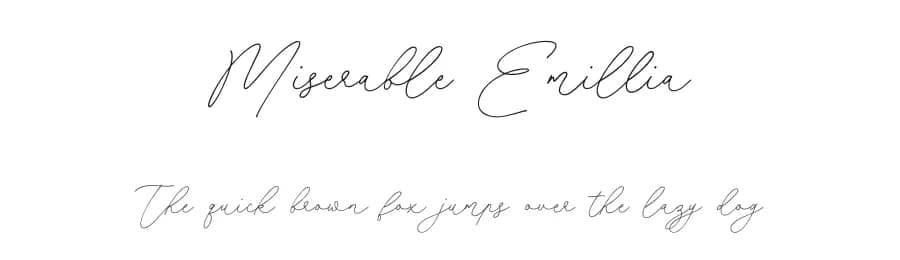 Miserable Emillia
The quick brown fox jumps over the lazy dog